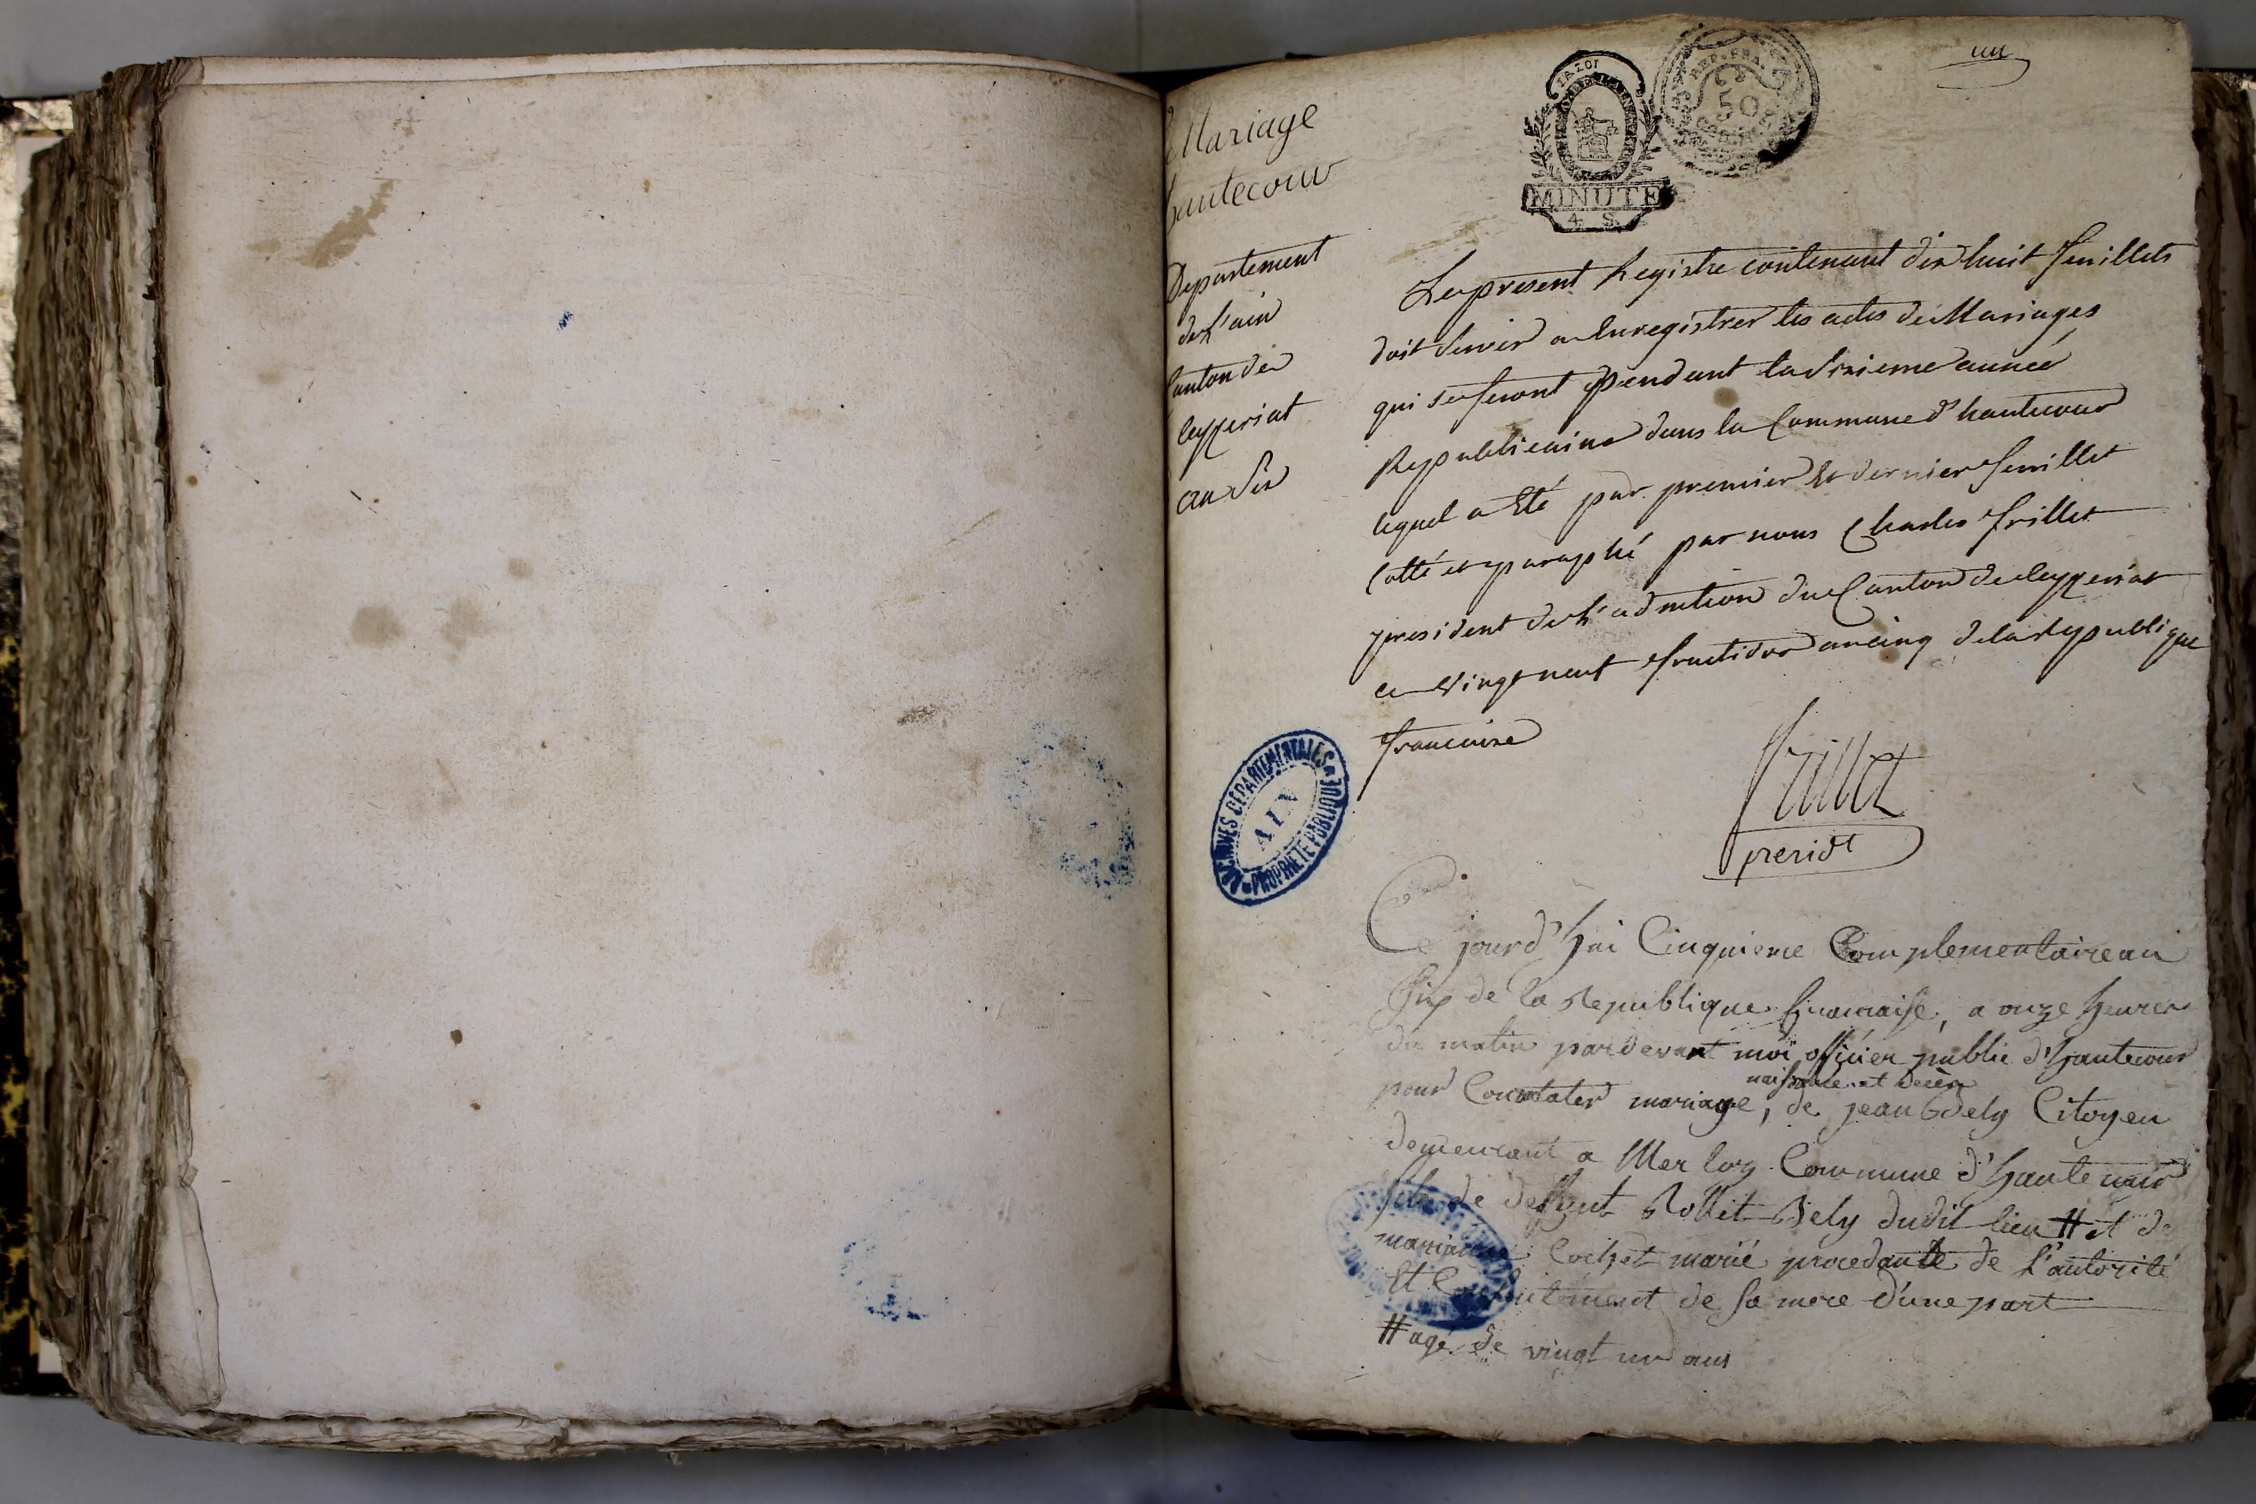 un
Mariage
hautecour
LA LOI
REP. FRA.
50
MINUTE
4 S
Departement
de L'ain
Canton de
ceyzeriat
an Six
Le present Registre contenant dix huit feuillets
doit servir a Enregistrer les actes de Mariages
qui se feront pendant la Sixieme année
Republicaine dans la Commune d'hautecour
lequel a Eté par premier & dernier feuillet
Cotté et paraphé par nous Charles frillet
president de L'admtion du Canton de Ceyzeriat
ce Vingt neuf fructidor an cinq de la Republique
francaise
frillet
presidt
ARCHIVES DEPARTEMENTALES
AIN
PROPRIETE PUBLIQUE
Ce jourd'hui Cinquieme Complementaire an
Six de la Republique francaise, a onze heures
du matin pardevant moi officier public d'hautecour
naissance et decès
pour Constater mariage, de jean Bely Citoyen
demeurant a Merloz Commune d'hautecour
fils de deffunt Rollet Bely dudit lieu # et de
marianne Cochet marié procedante de L'autorité
Et de sa mere d'une part
# agé de vingt un ans